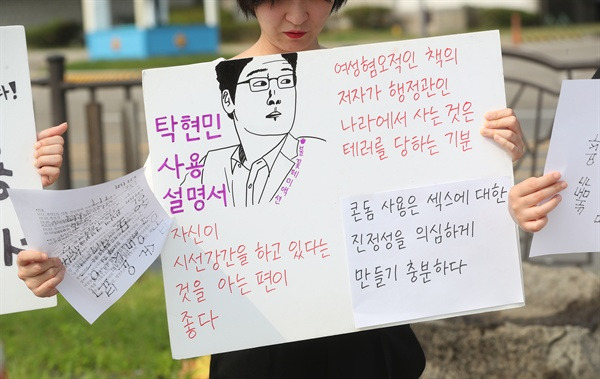 탁현민
사용
설명서
여성혐오적인 책의
저자가 행정관인
나라에서 사는것은
테러를 당하는 기분
자신이
시선강간을 하고 있다는
것을 아는 편이
좋다
콘돔 사용은 섹스에 대한
진정성을 의심하게
만들기 충분하다